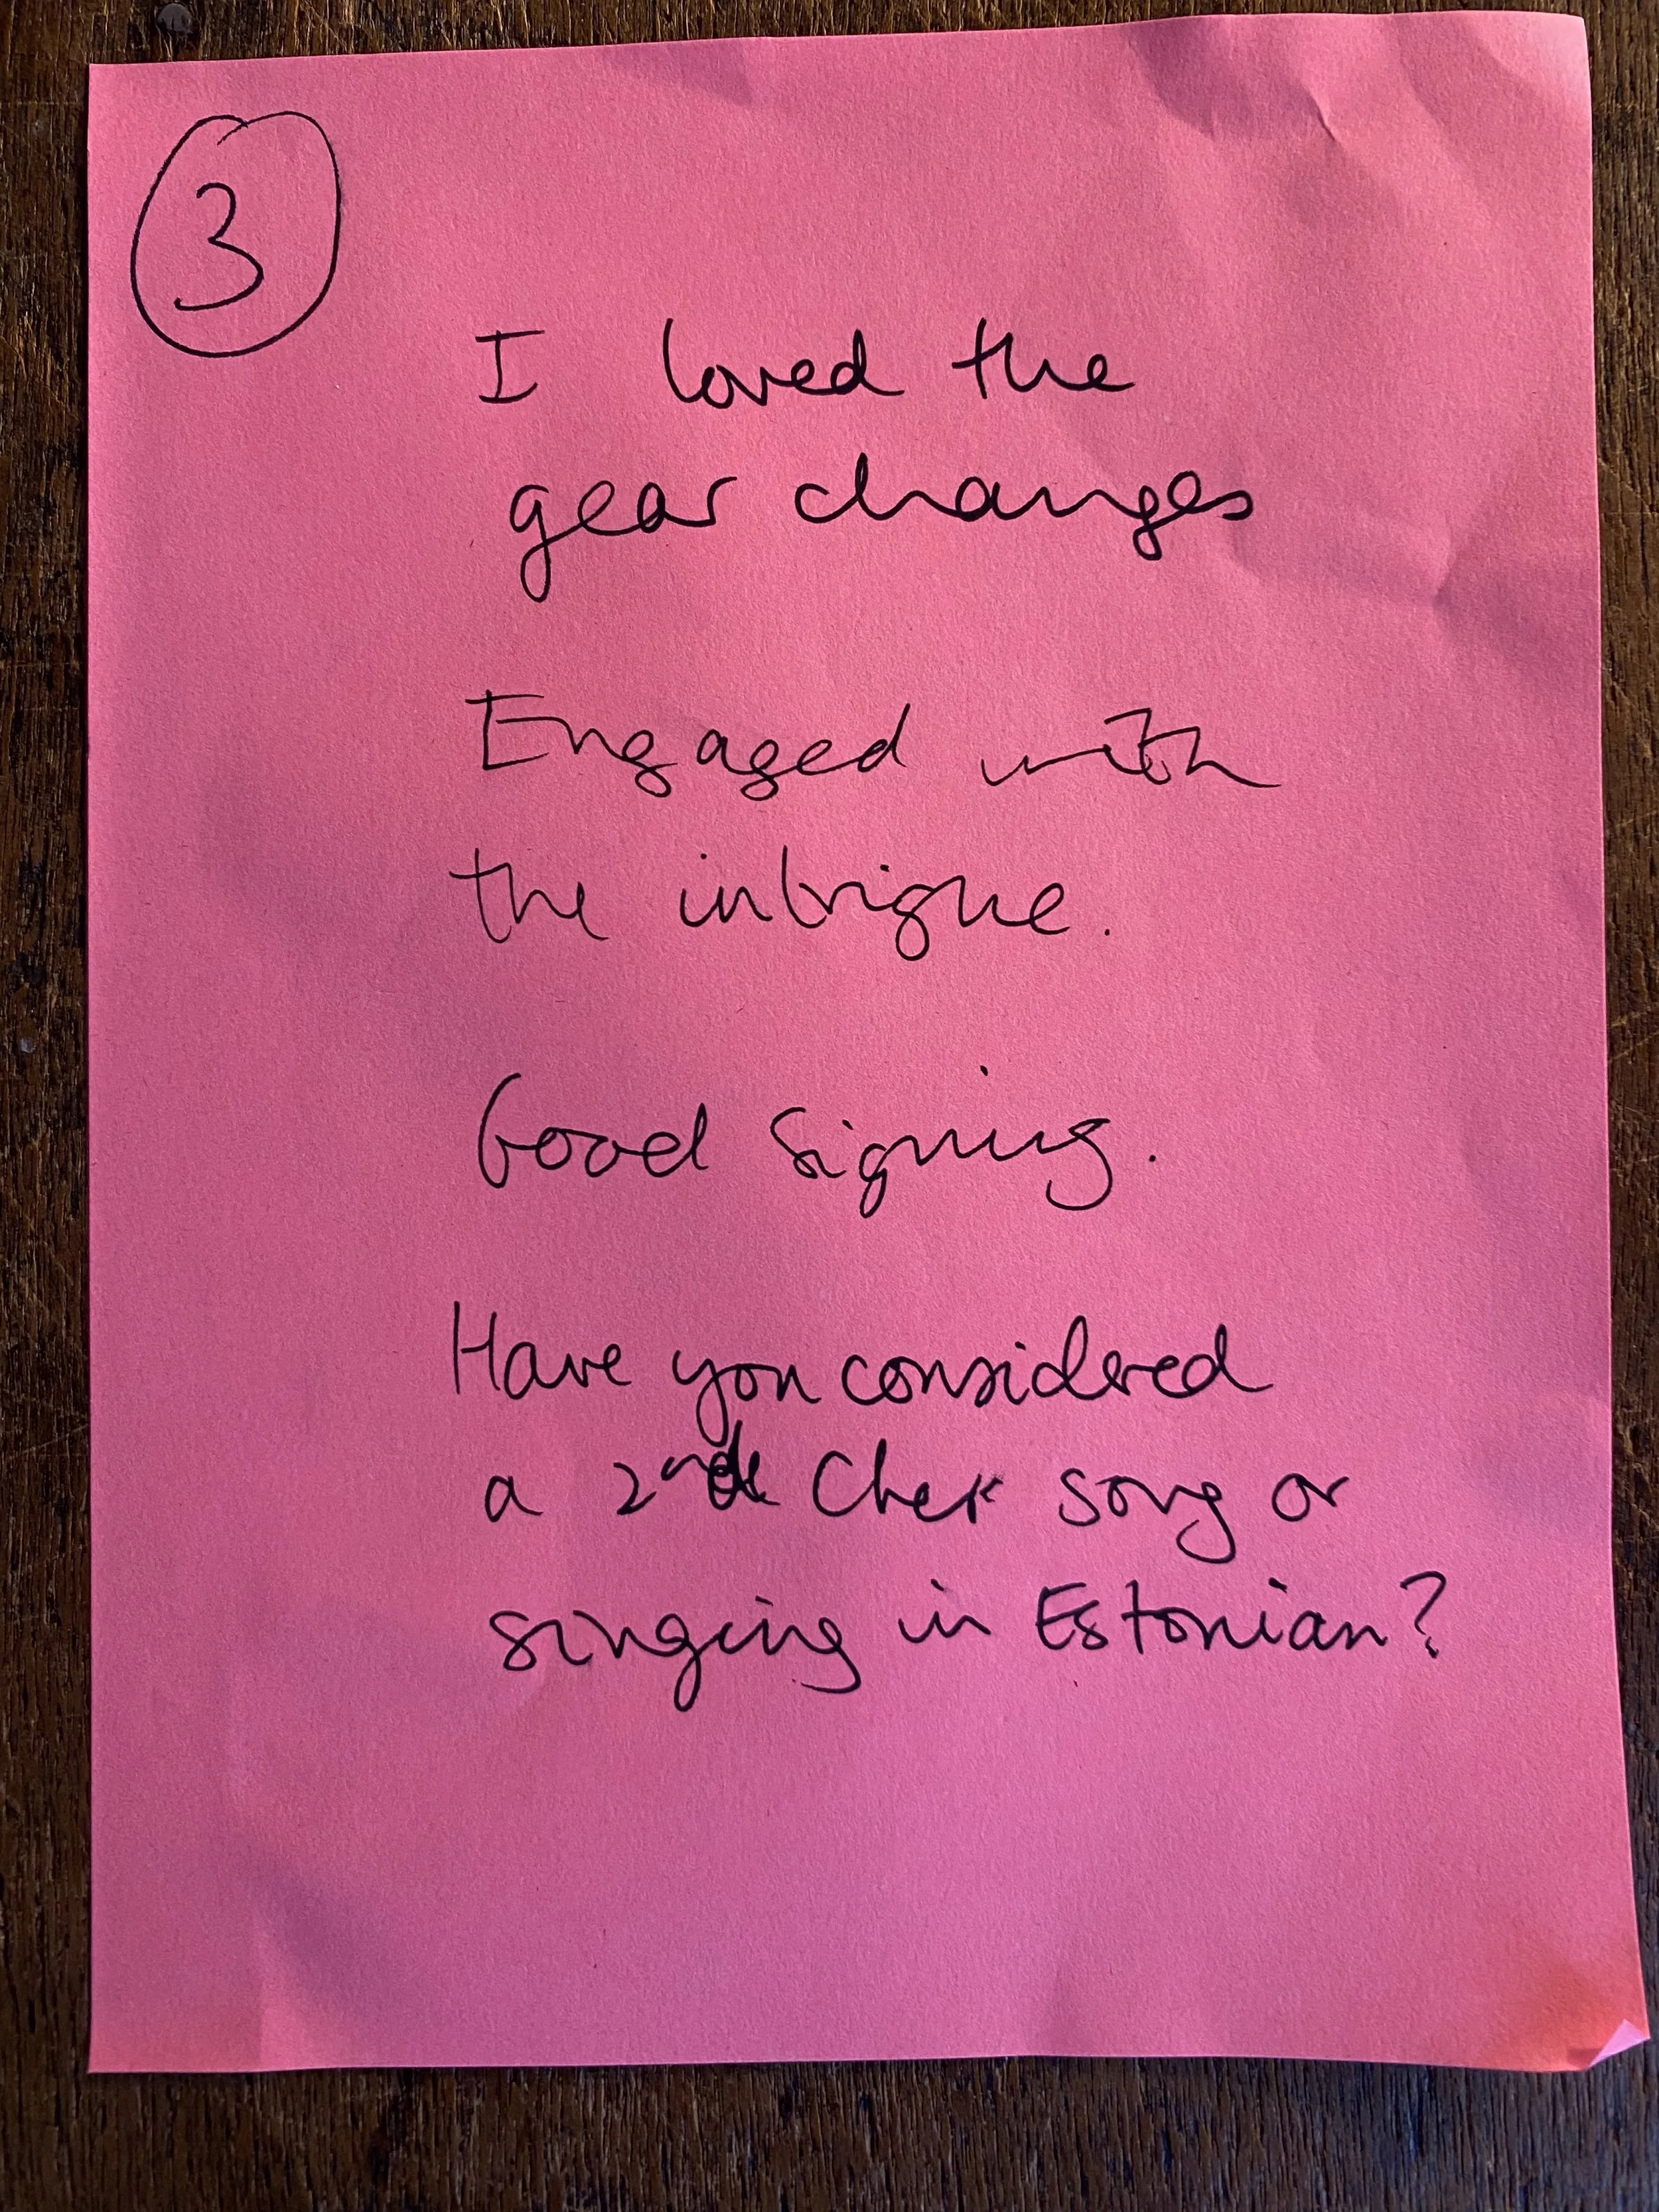 3
I loved the
gear changes
Engaged with
the intrigue.
Good Signing.
Have you considered
a 2nd Cher song or
singing in Estonian?